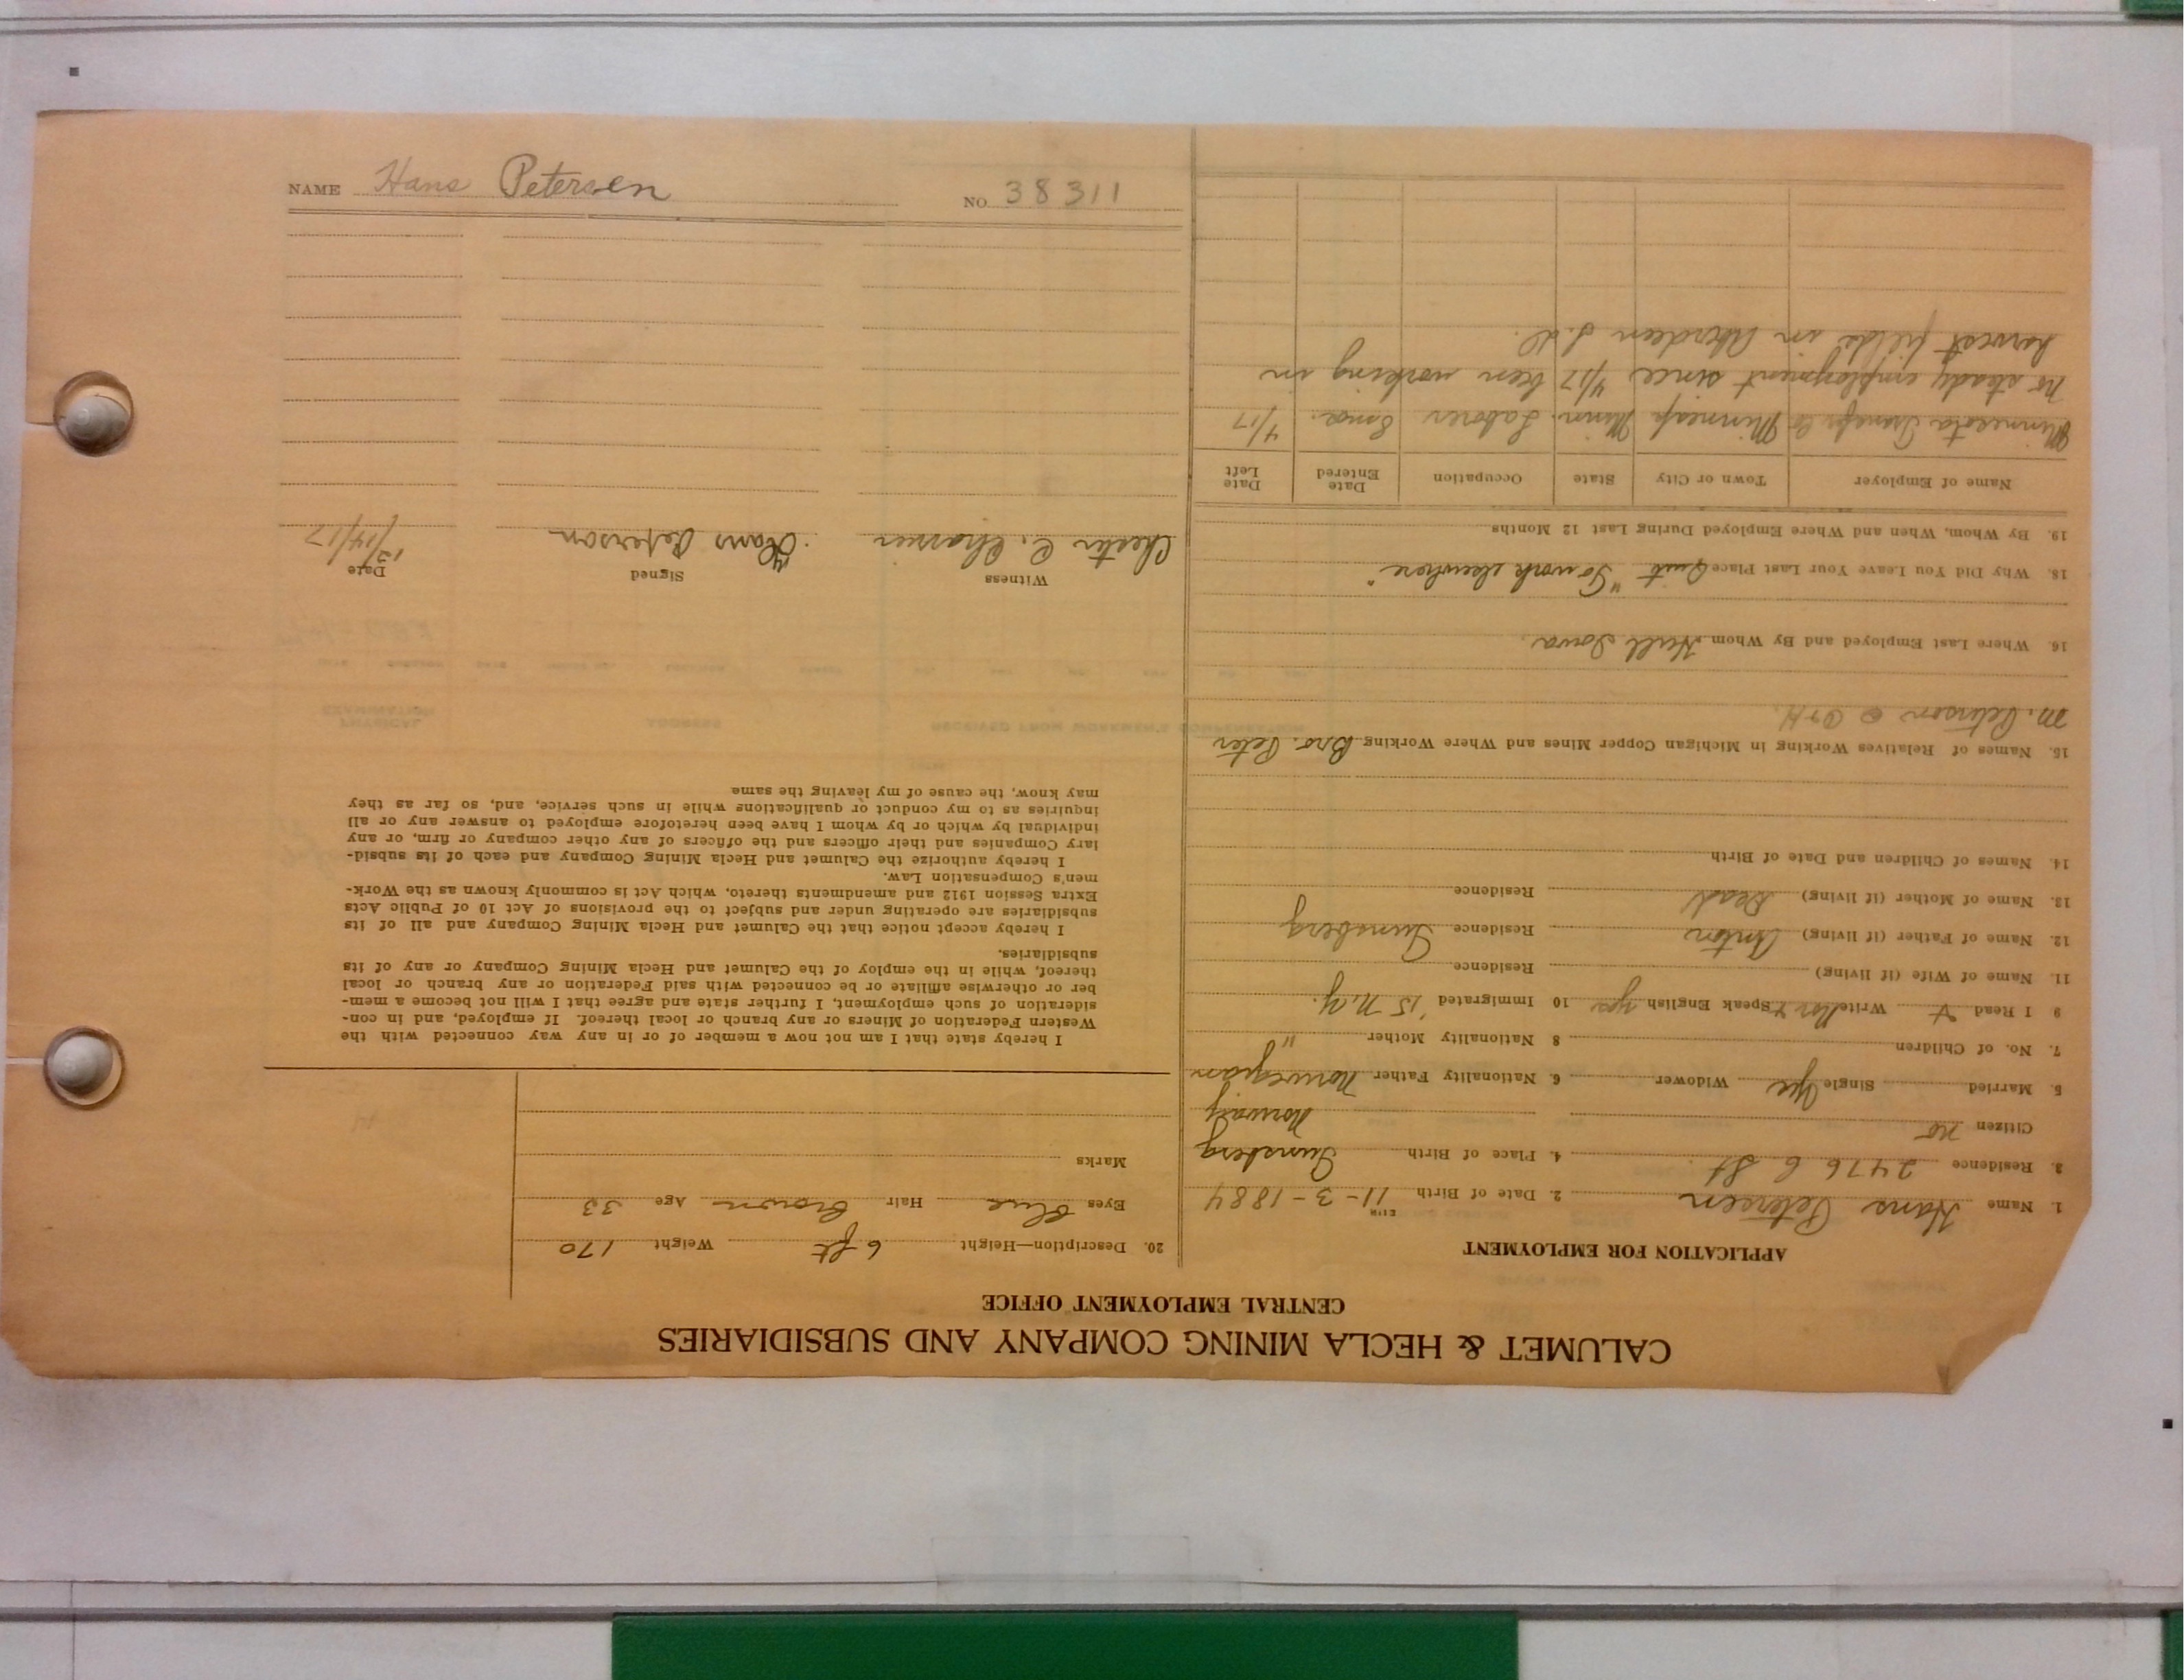 CALUMET & HECLA MINING COMPANY AND SUBSIDIARIES
CENTRAL EMPLOYMENT OFFICE
APPLICATION FOR EMPLOYMENT
1. Name Hans Petersen 2. Date of Birth 11-3-1884
3. Residence 2476 C St. 4. Place of Birth Tunsberg
Citizen no Norway
5. Married Single Yes Widower 6. Nationality Father Norwegian
7. No. of Children 8 Nationality Mother "
9 I Read Write Nor & Speak English yes 10 Immigrated '15 N.Y.
11. Name of Wife (if living) Residence
12. Name of Father (if living) Anton Residence Tunsberg
13. Name of Mother (if living) Dead Residence
14. Names of Children and Date of Birth
15. Names of Relatives Working in Michigan Copper Mines and Where Working Bro. Peter
M. Peterson @ O & H.
16. Where Last Employed and By Whom Hull Iowa.
18. Why Did You Leave Your Last Place Quit "To work elsewhere"
19. By Whom, When and Where Employed During Last 12 Months
Name of Employer Town or City State Occupation Date Entered Date Left
Minnesota Transfer Co Minneap Minn. Laborer 8 mos. 4/17
no steady employment since 4/17 been working in
harvest fields in Aberdeen S.d.
20. Description—Height 6 ft Weight 170
Eyes Blue Hair Brown Age 33
Marks
I hereby state that I am not now a member of or in any way connected with the
Western Federation of Miners or any branch or local thereof. If employed, and in con-
sideration of such employment, I further state and agree that I will not become a mem-
ber or otherwise affiliate or be connected with said Federation or any branch or local
thereof, while in the employ of the Calumet and Hecla Mining Company or any of its
subsidiaries.
I hereby accept notice that the Calumet and Hecla Mining Company and all of its
subsidiaries are operating under and subject to the provisions of Act 10 of Public Acts
Extra Session 1912 and amendments thereto, which Act is commonly known as the Work-
men's Compensation Law.
I hereby authorize the Calumet and Hecla Mining Company and each of its subsid-
iary Companies and their officers and the officers of any other company or firm, or any
individual by which or by whom I have been heretofore employed to answer any or all
inquiries as to my conduct or qualifications while in such service, and, so far as they
may know, the cause of my leaving the same
Witness Signed Date
Chester C. Hans Peterson 12/14/17
NAME Hans Petersen NO. 38311